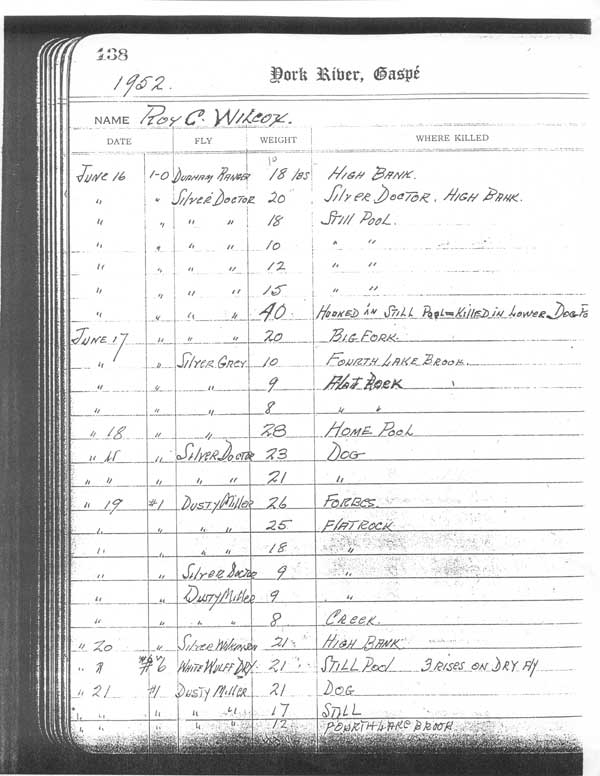 438
York River, Gaspé
1952.
NAME Roy C. Wilcox.
DATE FLY WEIGHT WHERE KILLED
10
June 16 1-0 Durham Ranger 18 lbs High Bank.
" " Silver Doctor 20 " Silver Doctor, High Bank.
" " " " 18 Still Pool.
" " " " 10 " "
" " " " 12 " "
" " " " 15 " "
" " " " 40 Hooked in Still Pool = Killed in Lower Dog
June 17 " " " 20 Big Fork.
" " Silver Grey 10 Fourth Lake Brook.
" " " 9 Flat Rock
" " " 8 " "
" 18 " " 28 Home Pool
" " " Silver Doctor 23 Dog
" " " " " 21 "
" 19 #1 Dusty Miller 26 Forbes.
" " " " 25 Flat Rock
" " " " 18 "
" " Silver Doctor 9 "
" " Dusty Miller 9 "
" " " " 8 Creek.
" 20 " Silver Wilkinson 21 High Bank
" " #6 White Wulff Dry. 21 Still Pool 3 rises on dry fly
" 21 #1 Dusty Miller 21 Dog
" " " " 17 Still
" " " " 12 Fourth Lake Brook